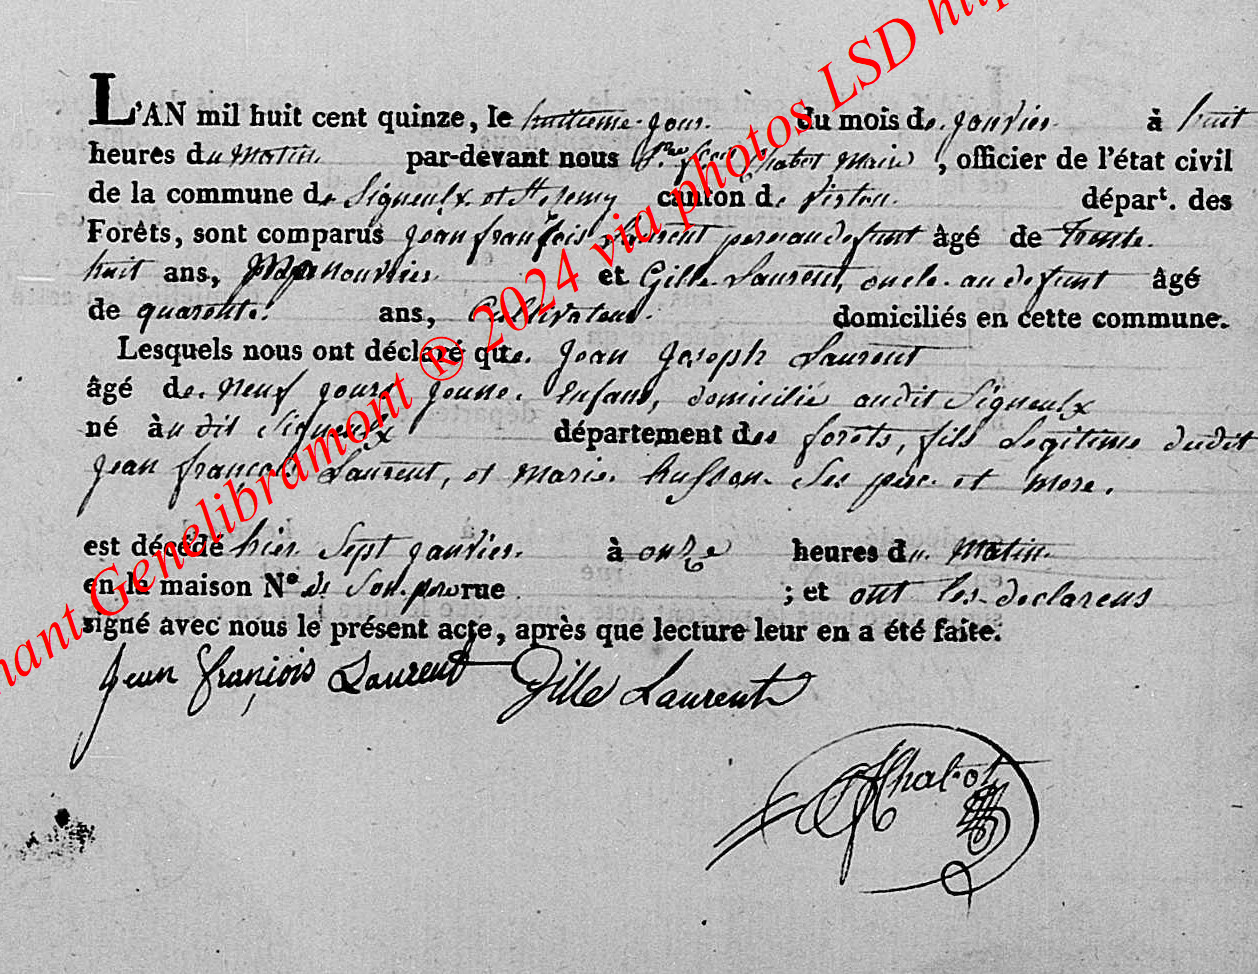 L'AN mil huit cent quinze, le huitieme jour du mois de janvier à huit
heures du Matin par-devant nous Chabot Maire, officier de l'état civil
de la commune de Signeulx et St remy canton de Virton départ. des
Forêts, sont comparus jean françois Laurent pere au defunt âgé de Trente
huit ans, Manouvrier et Gille Laurent, oncle au defunt âgé
de quarente ans, Cultivateur domiciliés en cette commune.
Lesquels nous ont déclaré que jean joseph Laurent
âgé de neuf jours jeune enfans, domicilié audit Signeulx
né àudit Signeulx département des forets, fils legitime dudit
jean françois Laurent, et marie husson Ses pere et mere.
est décédé hier Sept janvier à onze heures du Matin
en la maison N° de Son pere rue ; et ont les declarens
signé avec nous le présent acte, après que lecture leur en a été faite.
Jean françiois Laurent Gille Laurent
Chabot
nant Genelibramont ® 2024 via photos LSD